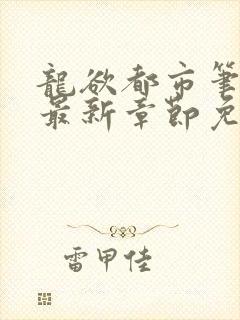 龍欲都市筆
最新章節免
雷甲佳